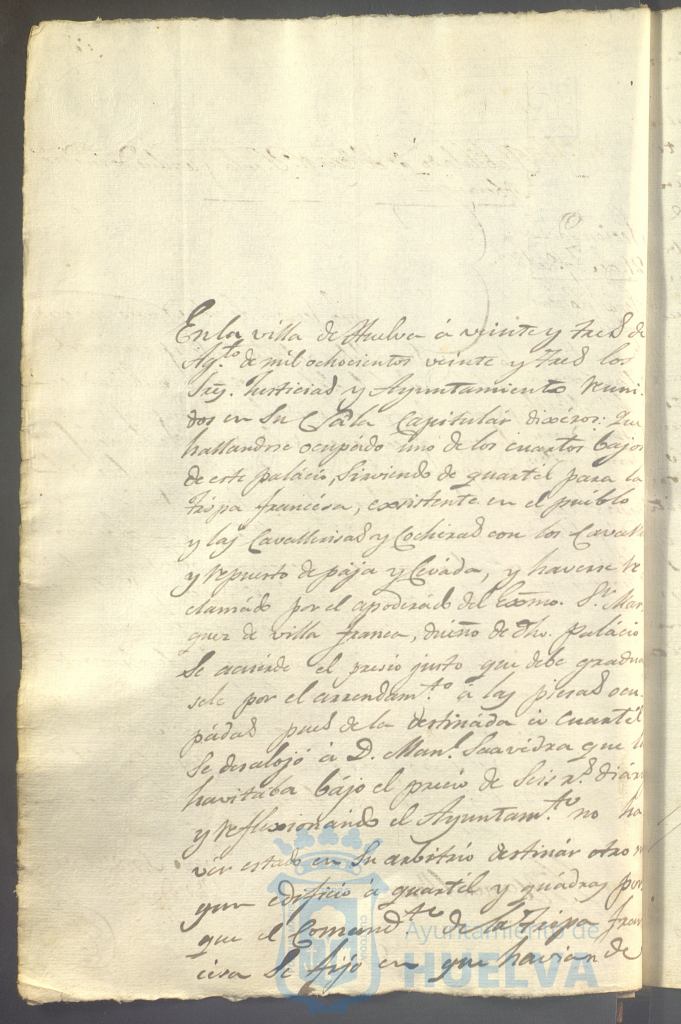 En la villa de Huelva á veinte y tres de
Ag.to de mil ochocientos veinte y tres los
Srs. Justicias y Ayuntamiento reuni
dos en su Sala Capitulár dixéron: Que
hallandose ocupádo uno de los cuartos bajos
de este palácio, sirviendo de quartél para la
tropa francésa, exsistente en el puéblo
y las Cavallerisas y Cocheras con los Cavall
y repuesto de pája y Cevada, y haverse re
clamádo por el apoderádo del Exmo. Sr. Mar
quez de villa franca, dueño de dho. palácio
se acuerde el presio justo que debe gradua
sele por el arrendam.to á las piesas ocu
pádas pues de la destináda á cuartél
se desalojó á D. Man.l Saavedra que l
havitaba bájo el precio de seis r.s diár
y reflexsionando el Ayuntam.to no ha
ver estado en su arbitrio destinár otro n
gun edificio á quartél y quádras por
que el Comand.te de la tropa fran
cesa se fijó en que havian de
Ayuntamiento de
HUELVA